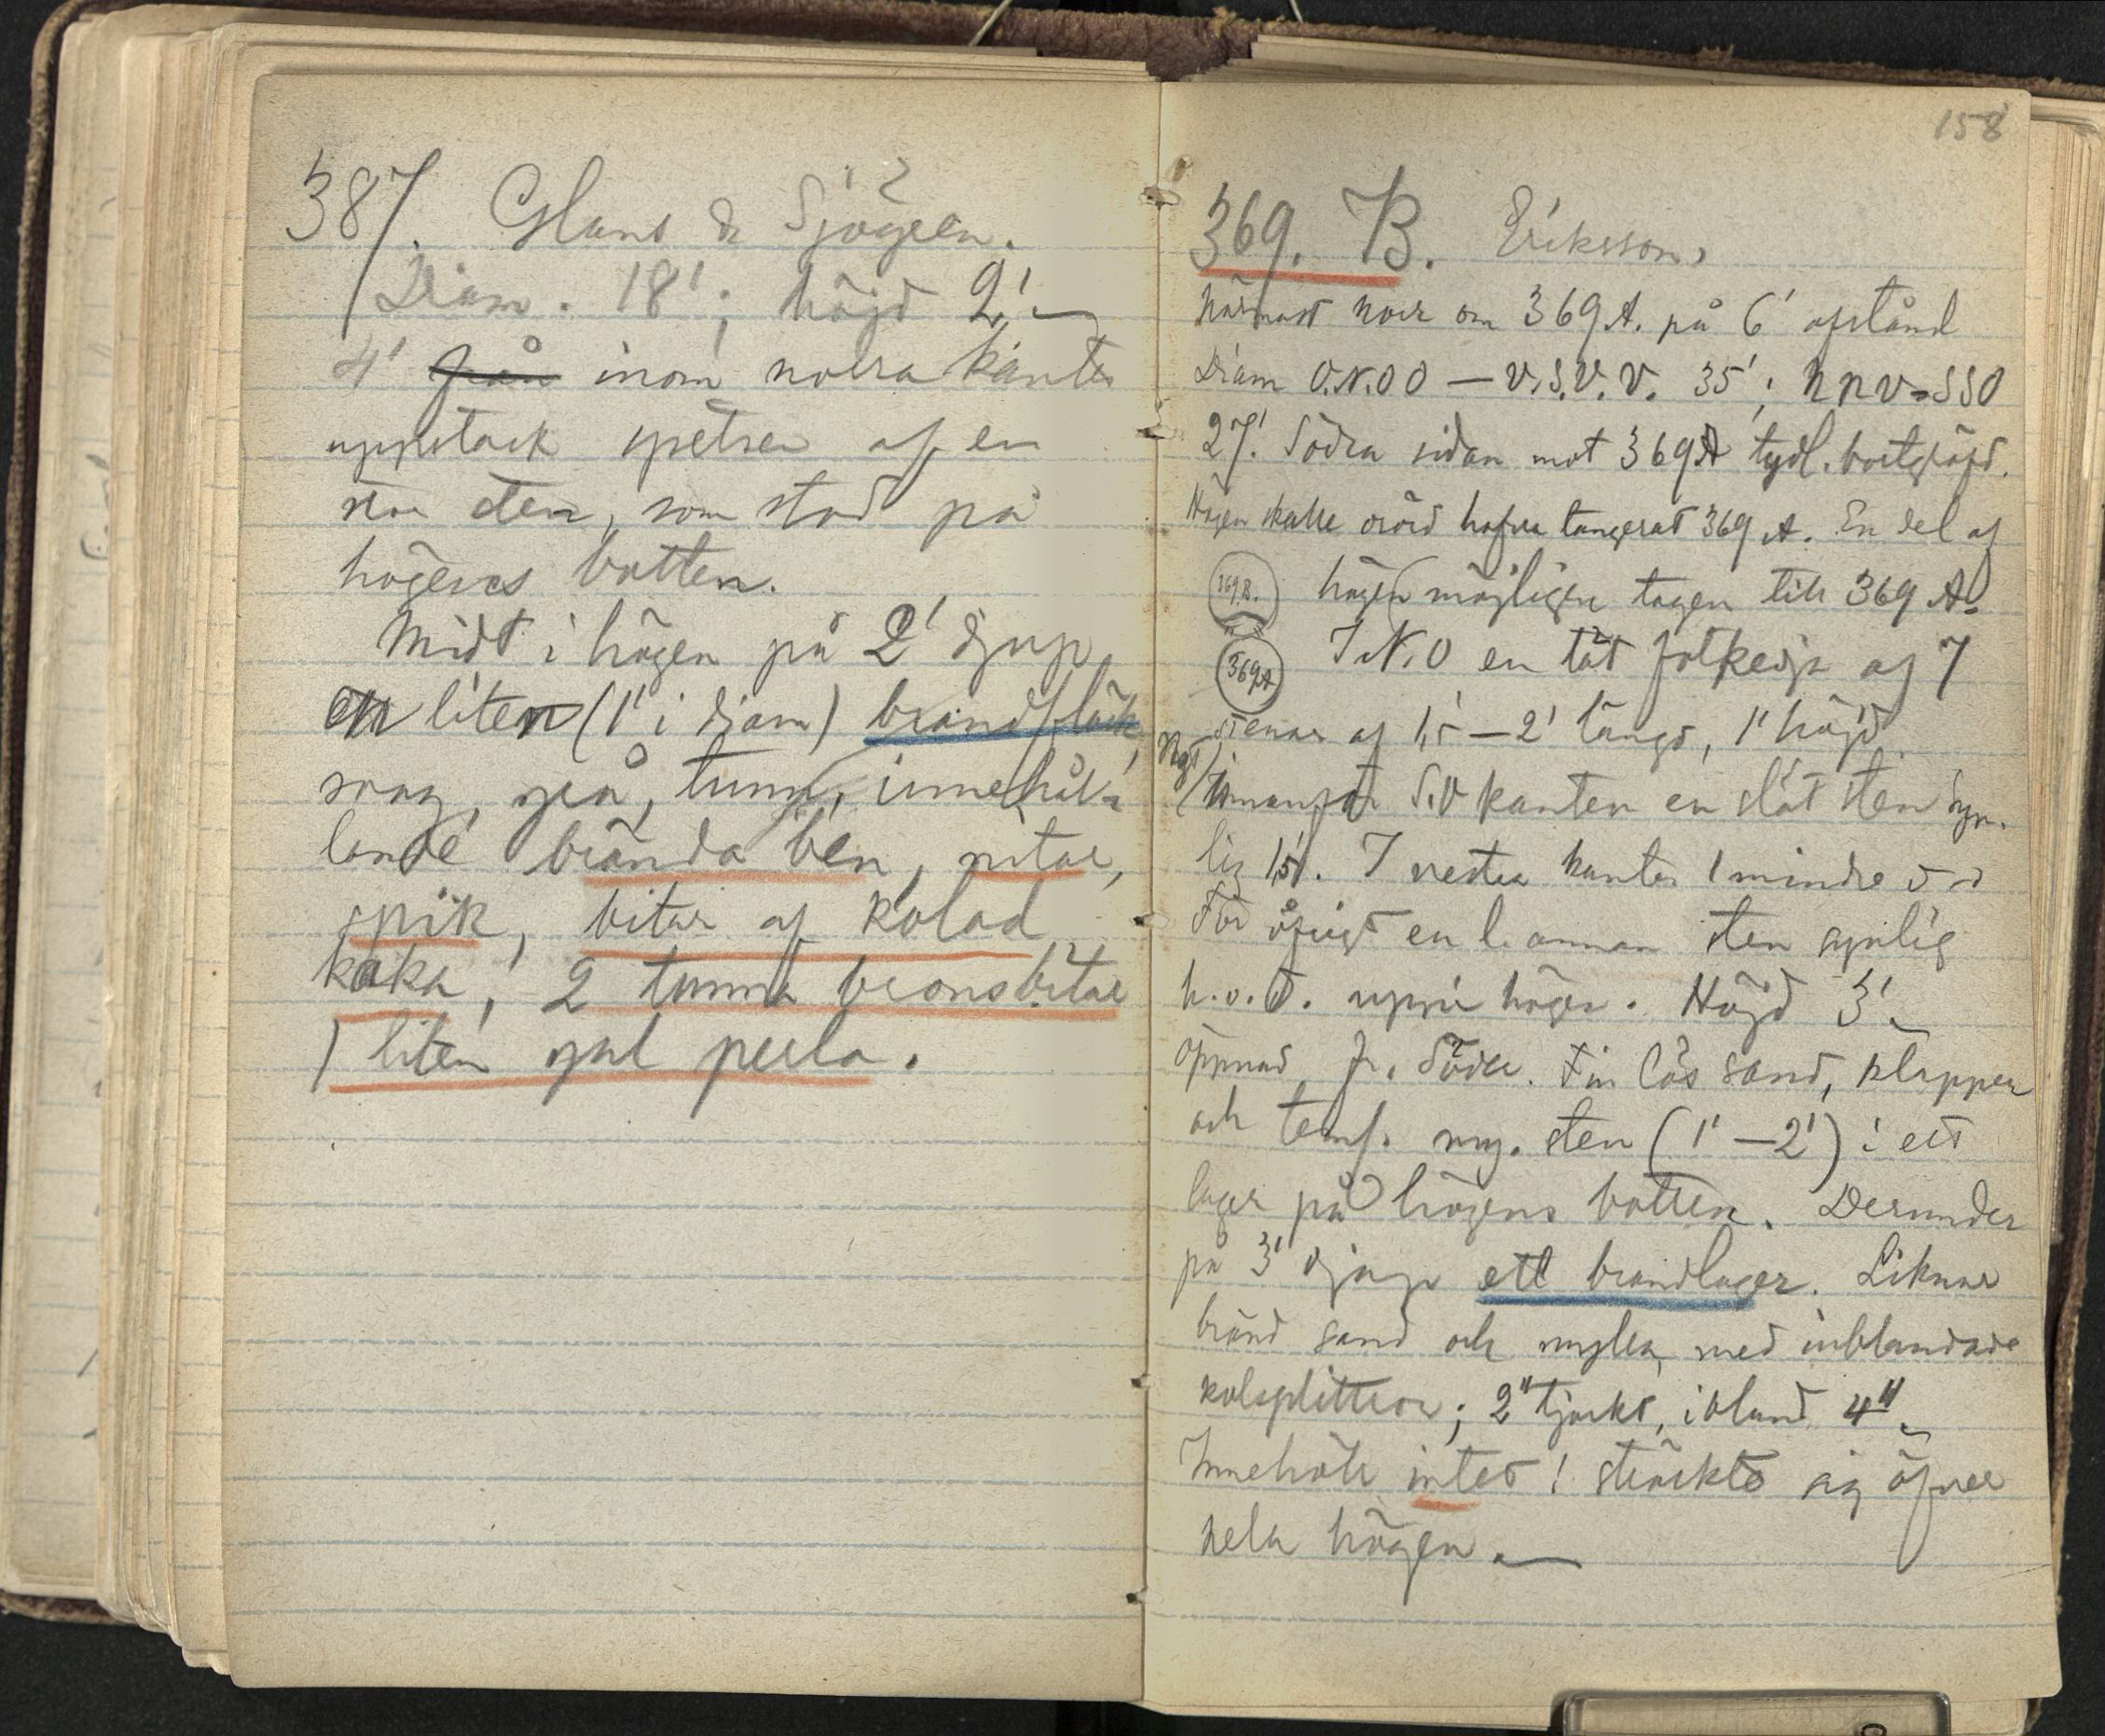 387. Glans & Sjögren.
Diam. 18'; höjd 2'.
4' från inom norra kanten
uppstack spetsen af en
stor sten, som stod på
högens botten.
Midt i högen på 2' djup
en liten (1' i diam) brandfläck,
svag, grå, tunn, innehål-
lande brända ben, nitar,
spik, bitar af kolad
kaka, 2 tunna bronsbitar
1 liten gul perla.
158
369. B. Eriksson,
närmast norr om 369 A. på 6' afstånd
Diam O.N.O O — V.S.V.V. 35'; NNV-SSO
27'. Södra sidan mot 369 A tydl. bortgräfd.
Högen skulle orörd hafva tangerat 369 A. En del af
369.B. högen möjligen tagen till 369 A.
369A I N.O en tät fotkedja af 7
stenar af 1,5 — 2' längd, 1' höjd.
Ngt innanför S.V kanten en slät sten syn-
lig 1,5'. I vestra kanten 1 mindre
För öfrigt en l. annan sten synlig
h.o.d. uppå högen. Höjd 3'.
öppnad fr. söder. Fin lös sand, klapper
och teml. myc. sten (1' — 2') i ett
lager på högens botten. Derunder
på 3' djup ett brandlager. Liknar
bränd sand och mylla, med inblandade
kolsplittror; 2" tjockt, ibland 4".
Innehöll intet! sträckte sig öfver
hela högen.